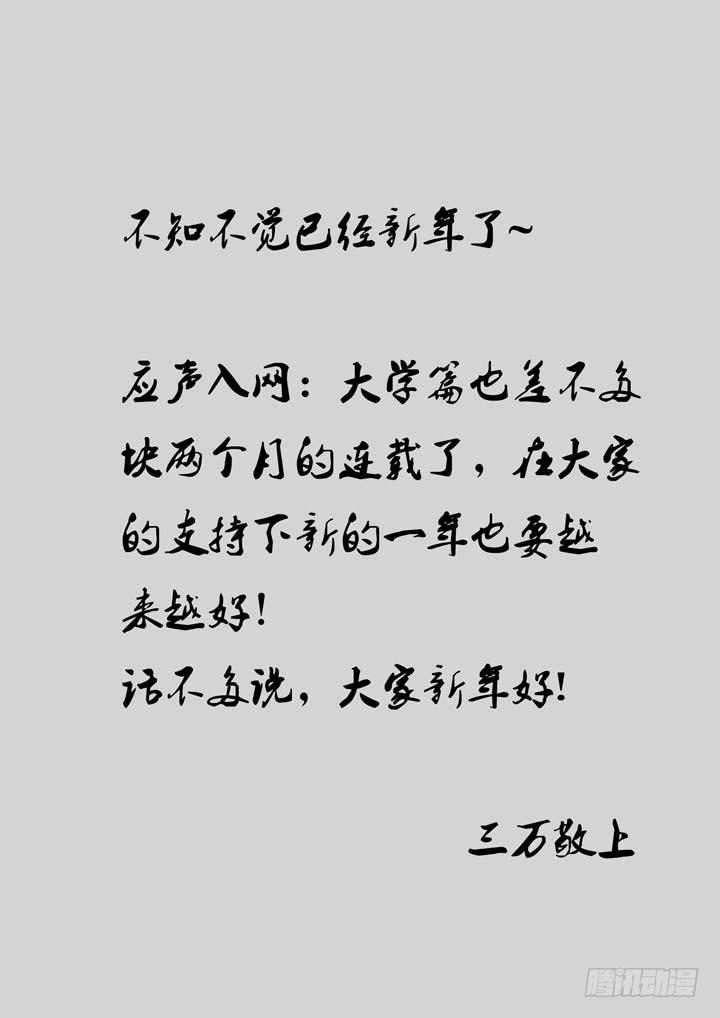 不知不觉已经新年了~
应声入网：大学篇也差不多
块两个月的连载了，在大家
的支持下新的一年也要越
来越好！
话不多说，大家新年好！
三万敬上
腾讯动漫